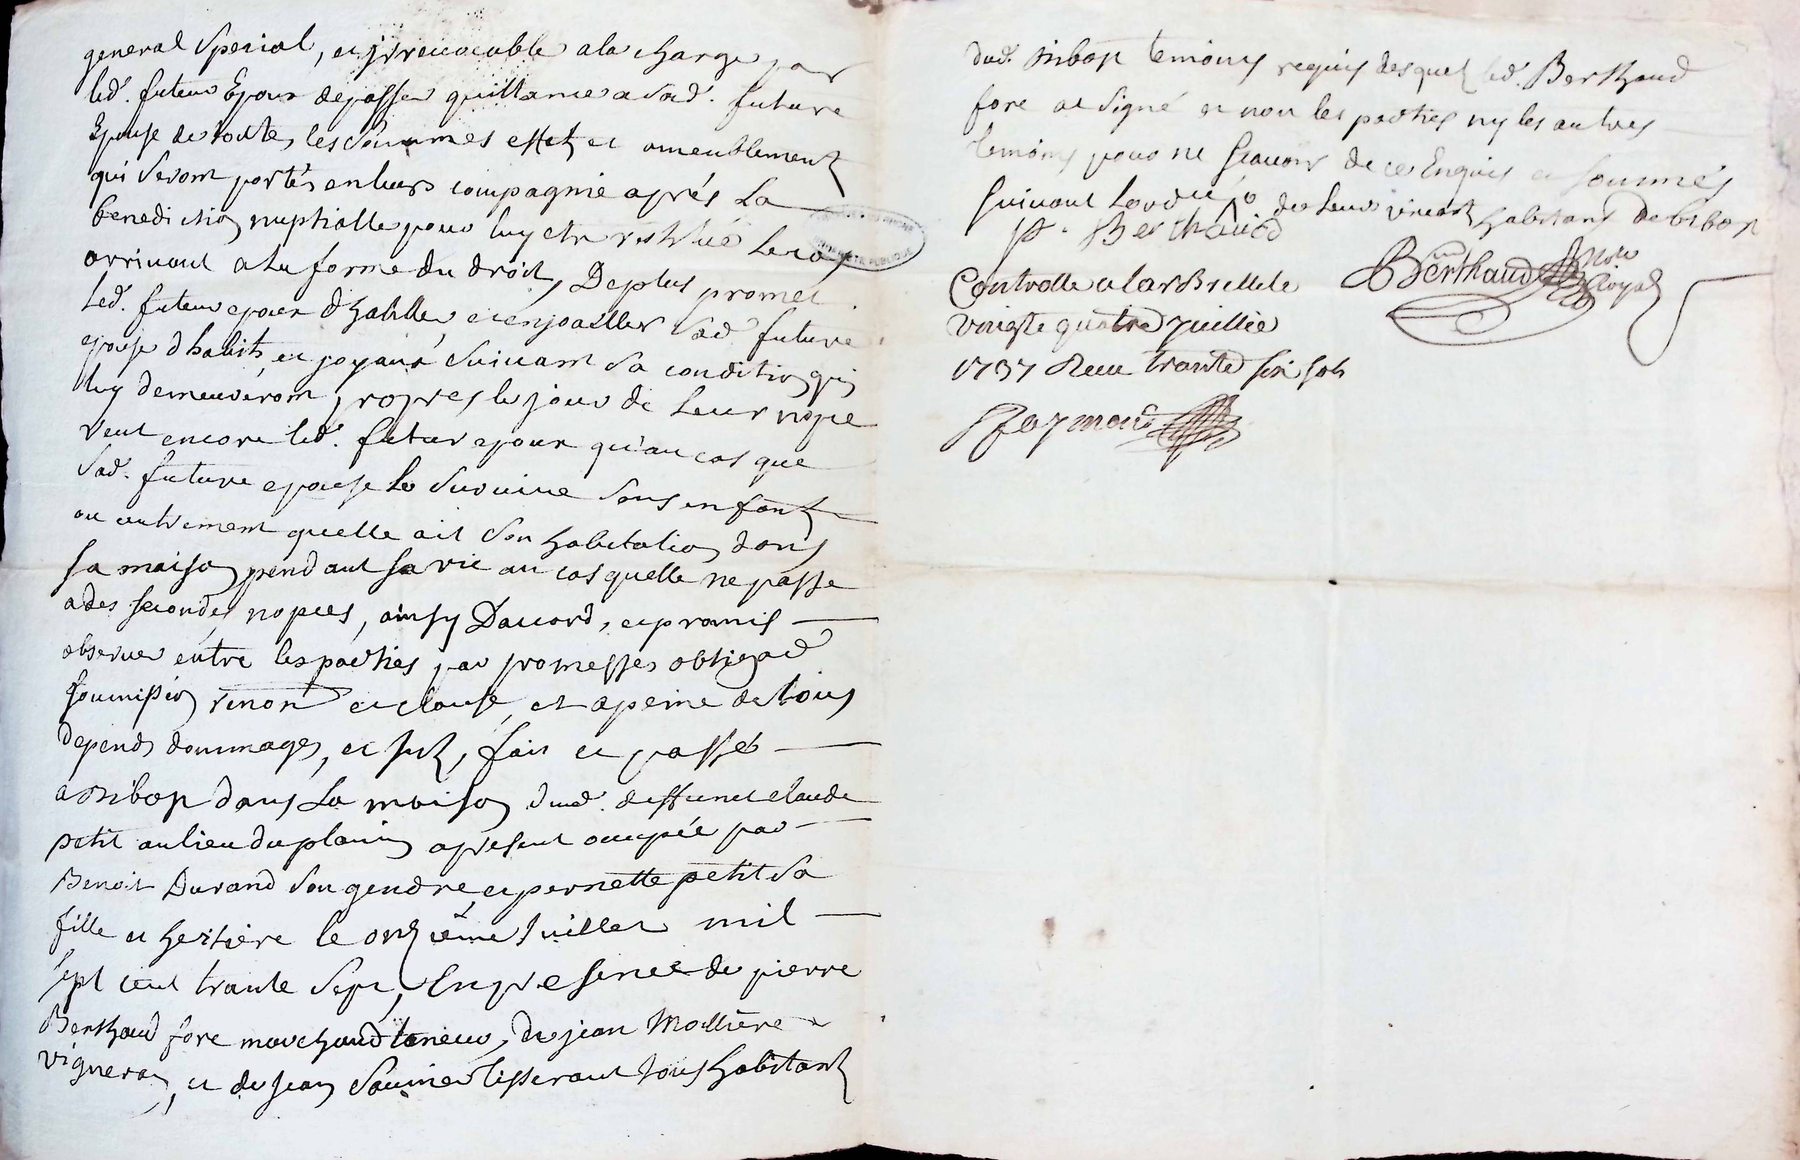 general special, et jrreuocable a la charge par
led. futeur Epoux de passer quittance a sad. future
Epouse de toutes les sommes effetz et ameublement
qui seront portés en leurs compagnie aprés la
benediction nuptialle pour luy etre restitué le cas
arrivant a la forme du droit, De plus promet
led. futeur epoux d'habiller et enjoailler sad. future
epouse d'habits et joyaux suivant sa condition qui
luy demeureront propres le jour de leur nopce
veut encore led. futur epoux qu'au cas que
sad. future epouse le survive sans enfantz
ou autrement quelle ait son habitation dans
sa maison pendant sa vie au cas quelle ne passe
a des secondes nopces, ainsy D'accord, et promis
observer entre les parties par promesses obligaō
soumission renonō et clause, et a peine de tous
depends dommages, et jntz, fait et passé
a Ribop dans la maison dud. deffunct claude
petit au lieu du plain a present occupée par
Benoit Durand son gendre, et pernette petit sa
fille et heritiere le onzième Juillet mil
sept cent trante sept, En presence de pierre
Berthaud fore marchand taneur, de jean Mollière
vigneron, et de Jean saunier tisserant tous habitant
dud. Ribop temoins requis desquelz led. Berthaud
fore a signé et non les parties ny les autres
temoins pour ne scavoir de ce Enquis et sommés
suivant l'ord habitans de Ribop
p. Berthaud
Controllé a larBrellele
Berthaud Nore Royal
vingte quatre Juillie
1737 Receu trante six sols
Raymond